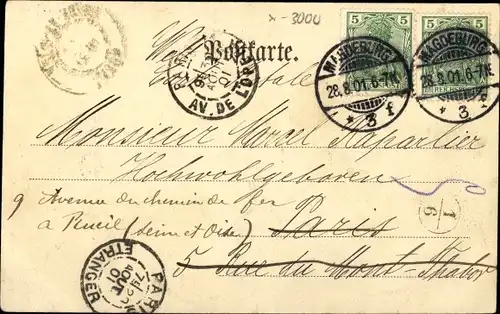 x-3000
Postkarte.
5 5
5 5
MAGDEBURG
28.8.01.6-7N.
* 3 f
MAGDEBURG
28.8.01.6-7N.
* 3 f
AV. DE L'OP
01
Monsieur Marcel
Hochwohlgeboren
9 Avenue du chemin de fer
à Rueil (seine et Oise) Paris
5 Rue du Mont-Thabor
1
6
PARIS
ETRANGER
AOUT
01